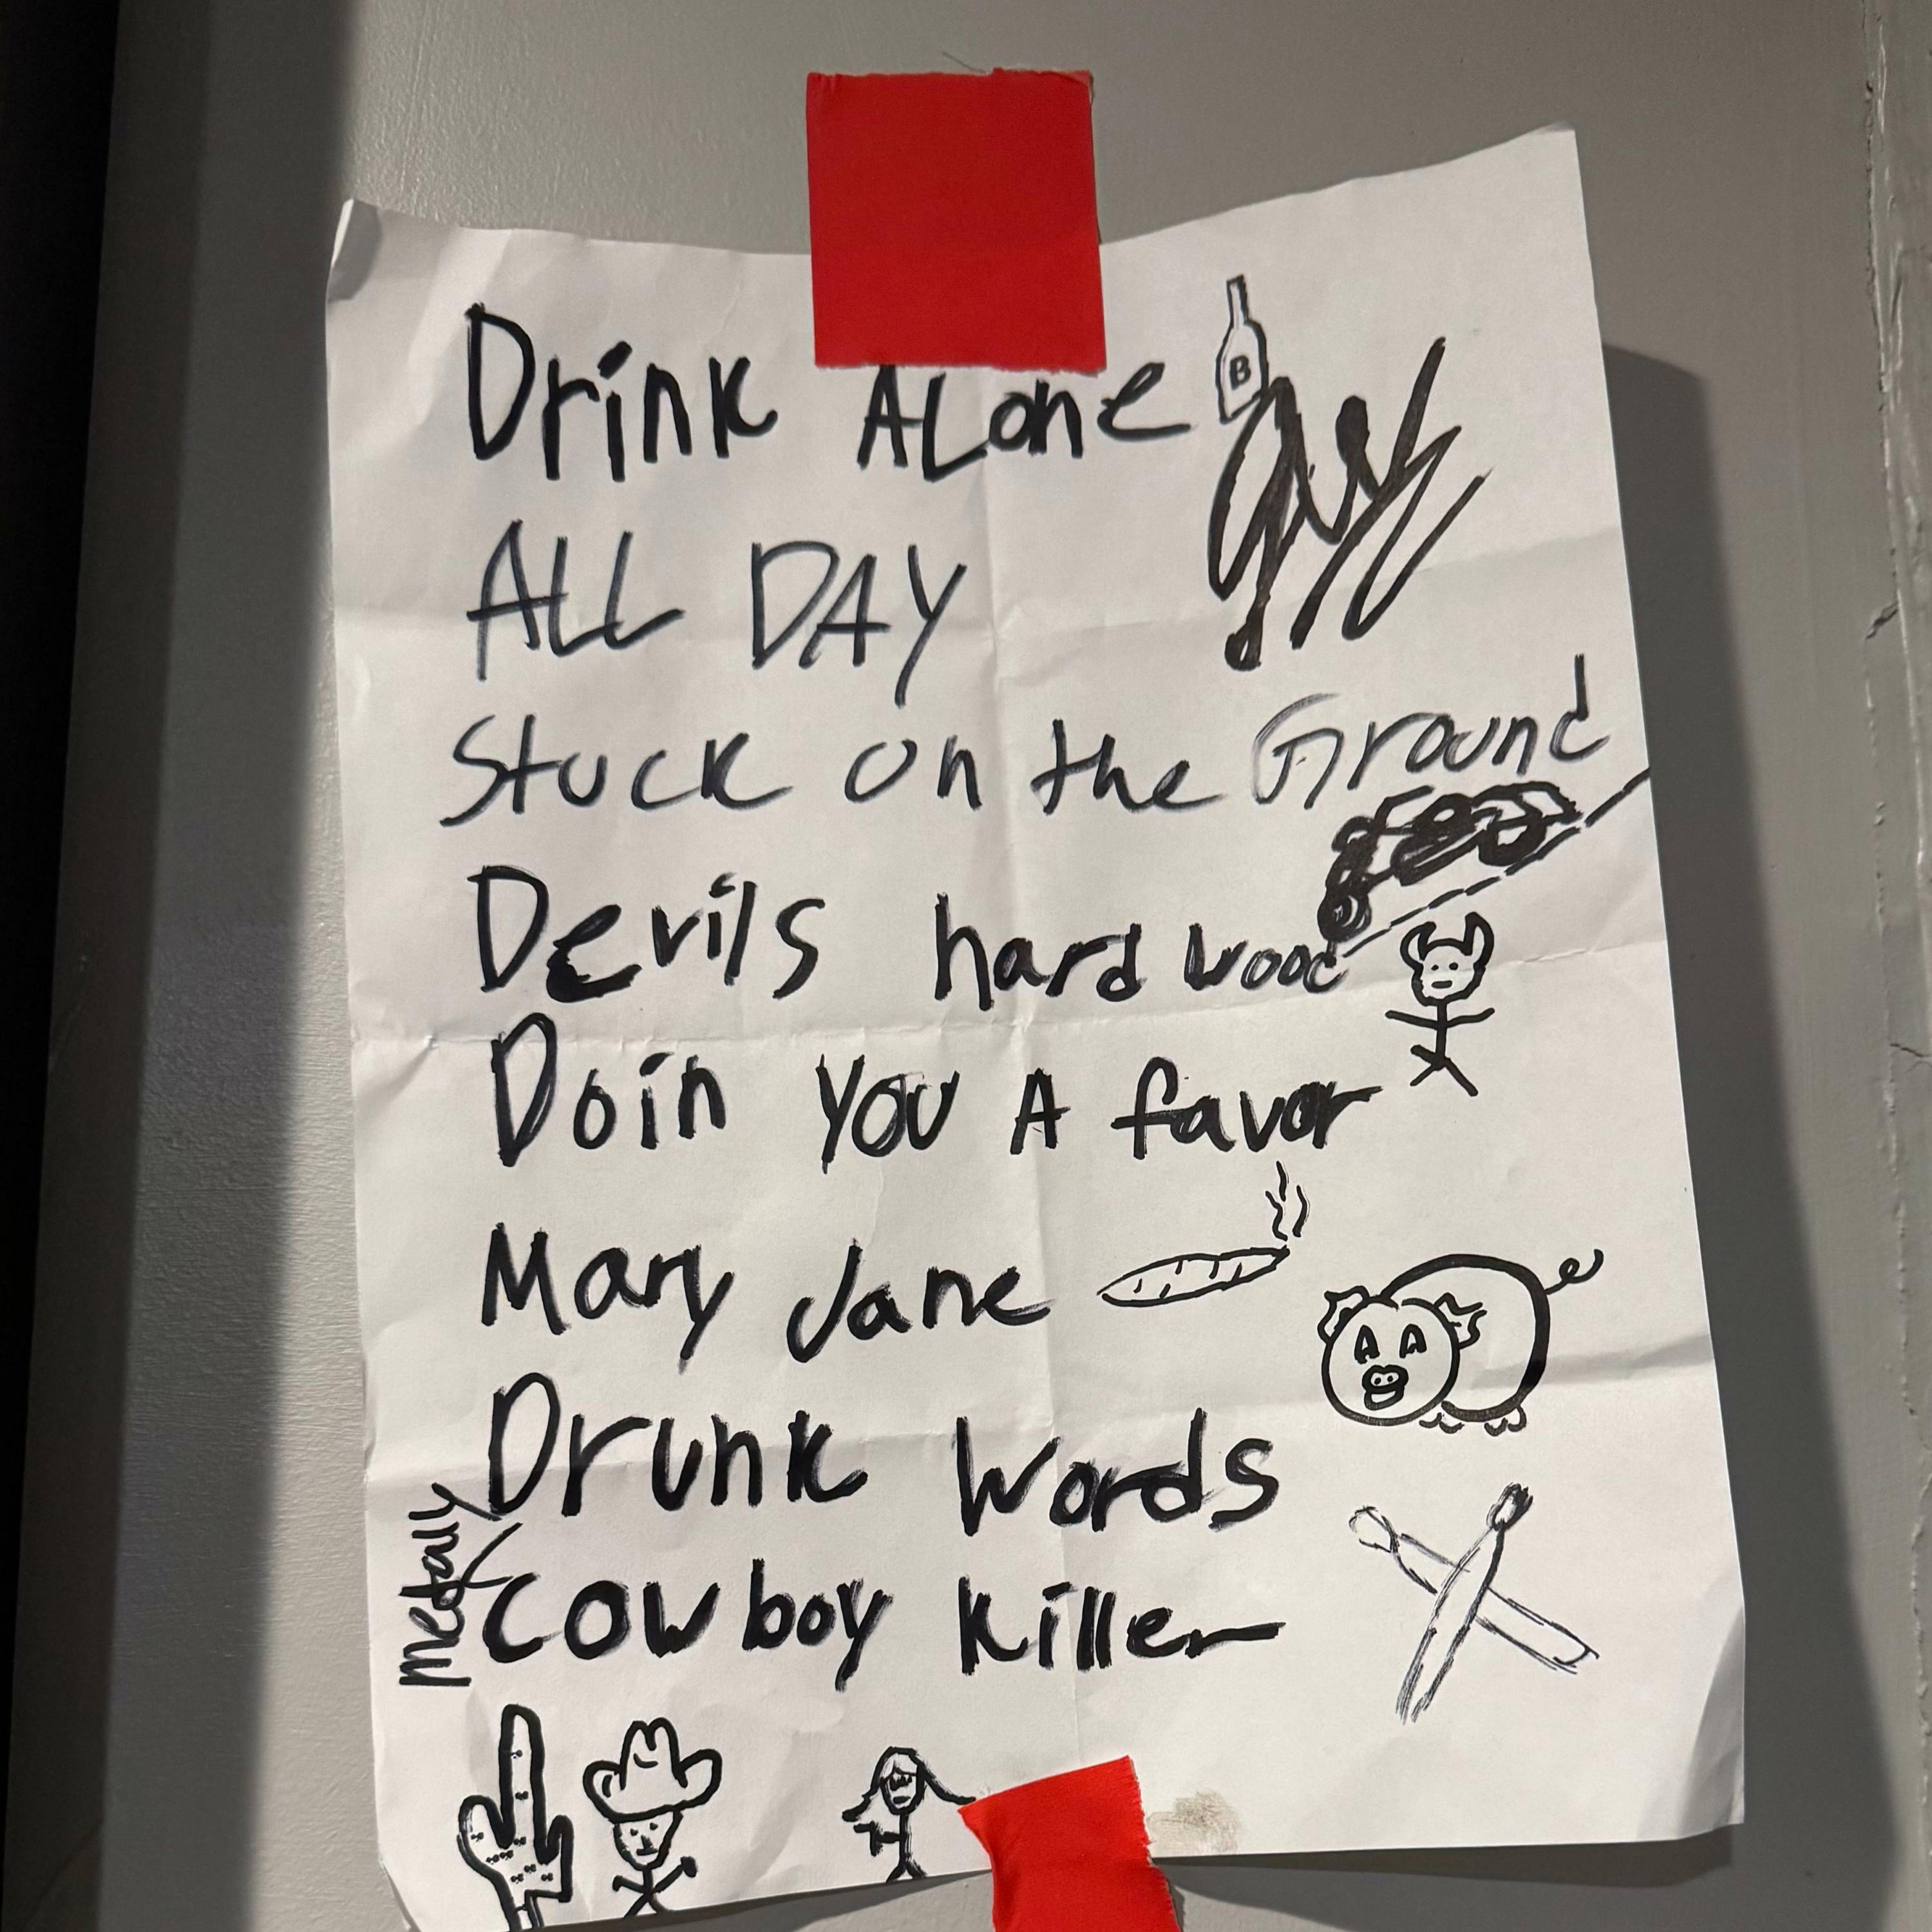 Drink ALone
B
ALL DAY
Stuck on the Ground
Devils hard wood
Doin YOU A favor
Mary Jane
Drunk Words
Metally
Cowboy Killer